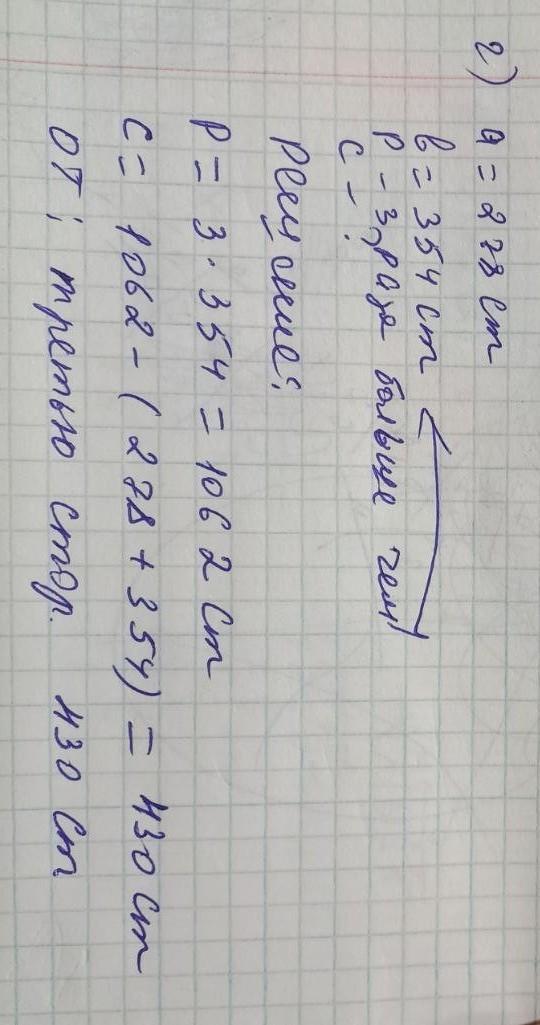 2) a = 278 cm
b = 354 cm
P - 3 раза больше чем
c - ?
Решение:
P = 3 · 354 = 1062 cm
c = 1062 - (278 + 354) = 430 cm
от: третью стор. 430 cm